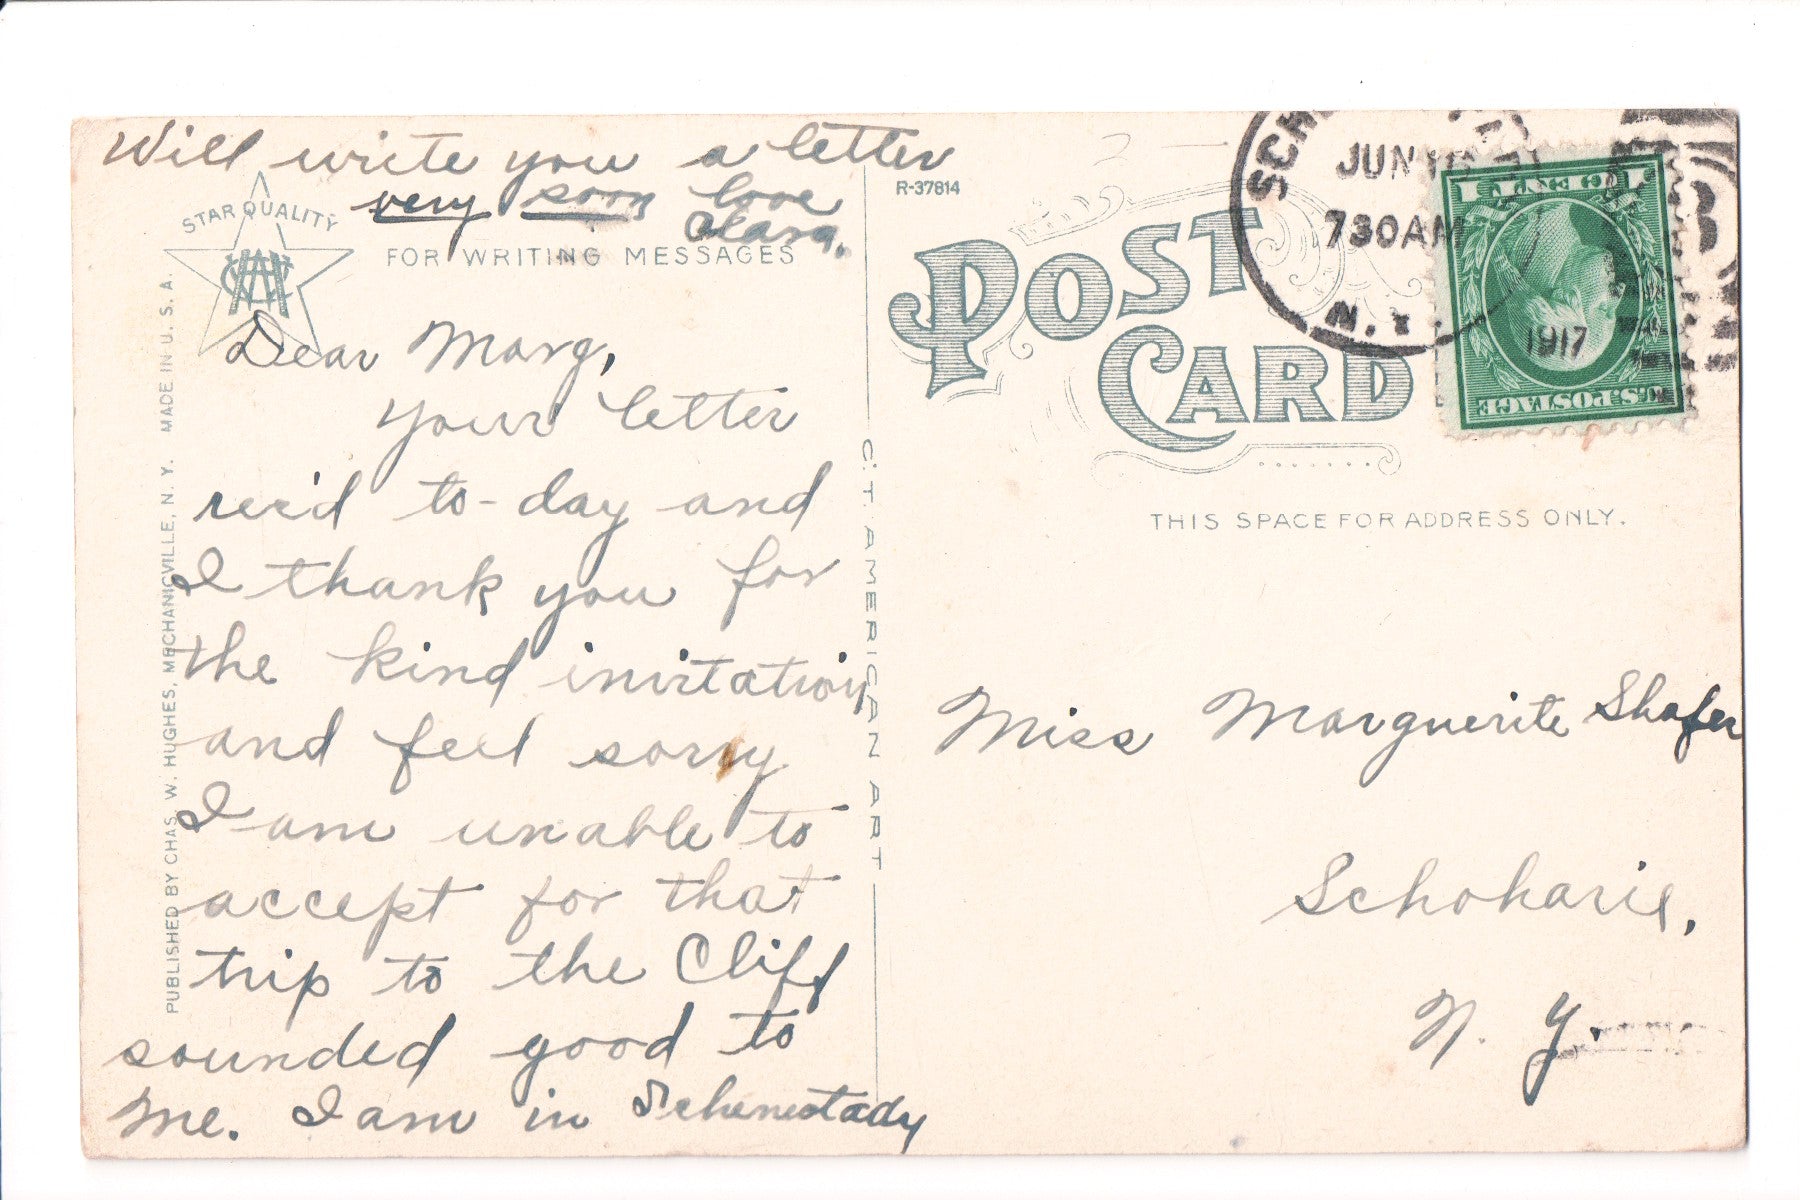 Will write you a letter
very soon love
Clara.
STAR QUALITY
FOR WRITING MESSAGES
Dear Marg,
Your letter
rec'd to-day and
I thank you for
the kind invitation
and feel sorry
I am unable to
accept for that
trip to the Cliff
sounded good to
me. I am in Schenectady
PUBLISHED BY CHAS. W. HUGHES, MECHANICVILLE, N. Y. MADE IN U. S. A.
C. T. AMERICAN ART
R-37814
POST
CARD
THIS SPACE FOR ADDRESS ONLY.
JUN
730AM
N.Y.
1917
1 CENT 1
U.S. POSTAGE
Miss Marguerite Shafer
Schoharie,
N. Y.